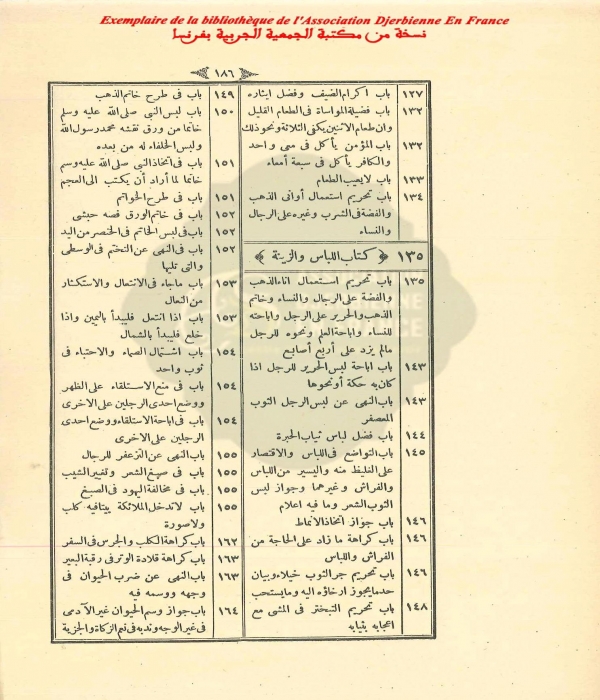 Exemplaire de la bibliothèque de l'Association Djerbienne En France
نسخة من مكتبة الجمعية الجربية بفرنسا
١٨٦
١٢٧ باب اكرام الضيف وفضل ايثاره
١٣٢ باب فضيلة المواساة فى الطعام القليل
وان طعام الاثنين يكفى الثلاثة ونحو ذلك
١٣٢ باب المؤمن يأكل فى معى واحد
والكافر يأكل فى سبعة أمعاء
١٣٣ باب لا يعيب الطعام
١٣٤ باب تحريم استعمال أوانى الذهب
والفضة فى الشرب وغيره على الرجال
والنساء
١٣٥ ﴿ كتاب اللباس والزينة ﴾
١٣٥ باب تحريم استعمال اناء الذهب
والفضة على الرجال والنساء وخاتم
الذهب والحرير على الرجل واباحته
للنساء واباحة العلم ونحوه للرجل
مالم يزد على أربع أصابع
١٤٣ باب اباحة لبس الحرير للرجل اذا
كان به حكة أو نحوها
١٤٣ باب النهى عن لبس الرجل الثوب
المعصفر
١٤٤ باب فضل لباس ثياب الحبرة
١٤٥ باب التواضع فى اللباس والاقتصار
على الغليظ منه واليسير من اللباس
والفراش وغيرهما وجواز لبس
الثوب الشعر وما فيه اعلام
١٤٦ باب جواز اتخاذ الانماط
١٤٦ باب كراهة ما زاد على الحاجة من
الفراش واللباس
١٤٦ باب تحريم جر الثوب خيلاء وبيان
حد ما يجوز ارخاؤه اليه وما يستحب
١٤٨ باب تحريم التبختر فى المشى مع
اعجابه بثيابه
١٤٩ باب فى طرح خاتم الذهب
١٥٠ باب لبس النبى صلى الله عليه وسلم
خاتما من ورق نقشه محمد رسول الله
ولبس الخلفاء له من بعده
١٥١ باب فى اتخاذ النبى صلى الله عليه وسم
خاتما لما أراد أن يكتب الى العجم
١٥١ باب فى طرح الخواتم
١٥٢ باب فى خاتم الورق فصه حبشى
١٥٢ باب فى لبس الخاتم فى الخنصر من اليد
١٥٢ باب فى النهى عن التختم فى الوسطى
والتى تليها
١٥٣ باب ماجاء فى الانتعال والاستكثار
من النعال
١٥٣ باب اذا انتعل فليبدأ باليمين واذا
خلع فليبدأ بالشمال
١٥٤ باب اشتمال الصماء والاحتباء فى
ثوب واحد
١٥٤ باب فى منع الاستلقاء على الظهر
ووضع احدى الرجلين على الاخرى
١٥٤ باب فى اباحة الاستلقاء ووضع احدى
الرجلين على الاخرى
١٥٥ باب النهى عن التزعفر للرجال
١٥٥ باب فى صبغ الشعر وتغيير الشيب
١٥٥ باب فى مخالفة اليهود فى الصبغ
١٥٥ باب لا تدخل الملائكة بيتا فيه كلب
ولا صورة
١٦٢ باب كراهة الكلب والجرس فى السفر
١٦٣ باب كراهة قلادة الوتر فى رقبة البعير
١٦٣ باب النهى عن ضرب الحيوان فى
وجهه ووسمه فيه
١٦٤ باب جواز وسم الحيوان غير الآدمى
فى غير الوجه وندبه فى نعم الزكاة والجزية